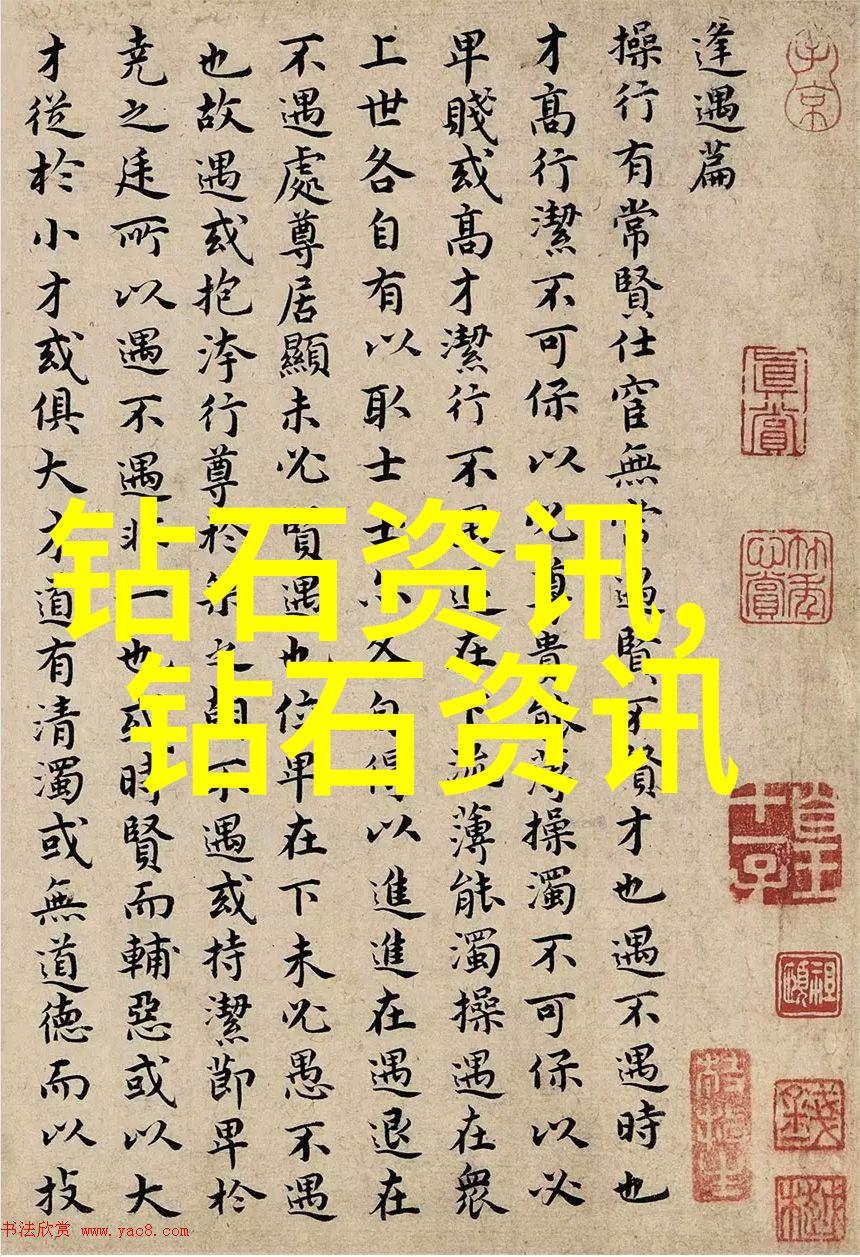 逢遇篇
操行有常賢仕宦無常遇賢不賢才也遇不遇時也
才高行潔不可保以必尊貴能薄操濁不可保以必
卑賤或高才潔行不遇退在下流薄能濁操遇在衆
上世各自有以取士士亦各自得以進進在遇退在
不遇處尊居顯未必賢遇也位卑在下未必愚不遇
也故遇或抱洿行尊於桀之朝不遇或持潔節卑於
堯之廷所以遇不遇非一也或時賢而輔惡或以大
才從於小才或俱大才道有清濁或無道德而以技
子京
真賞
钻石资讯,
钻石资讯
书法欣赏 www.yac8.com